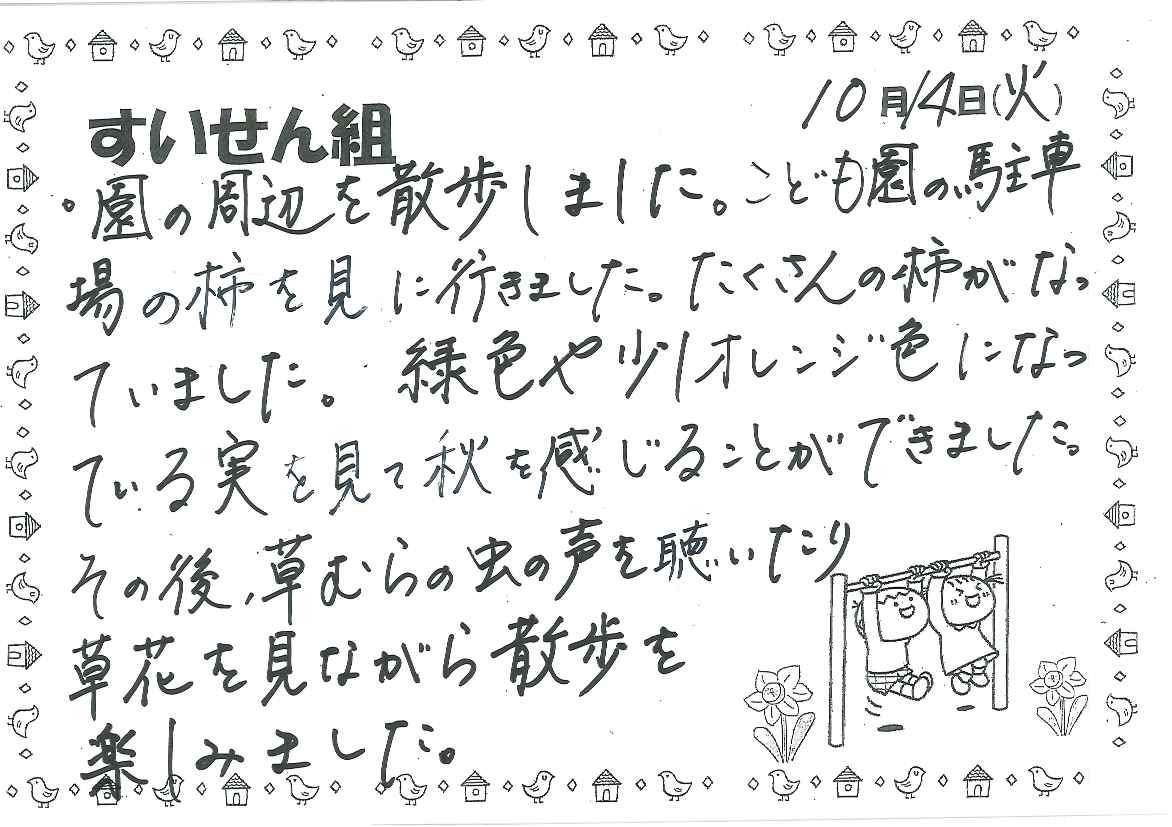 10月14日(火)
すいせん組
・園の周辺を散歩しました。こども園の駐車
場の柿を見に行きました。たくさんの柿がなっ
ていました。緑色や少しオレンジ色になっ
ている実を見て秋を感じることができました。
その後、草むらの虫の声を聴いたり
草花を見ながら散歩を
楽しみました。